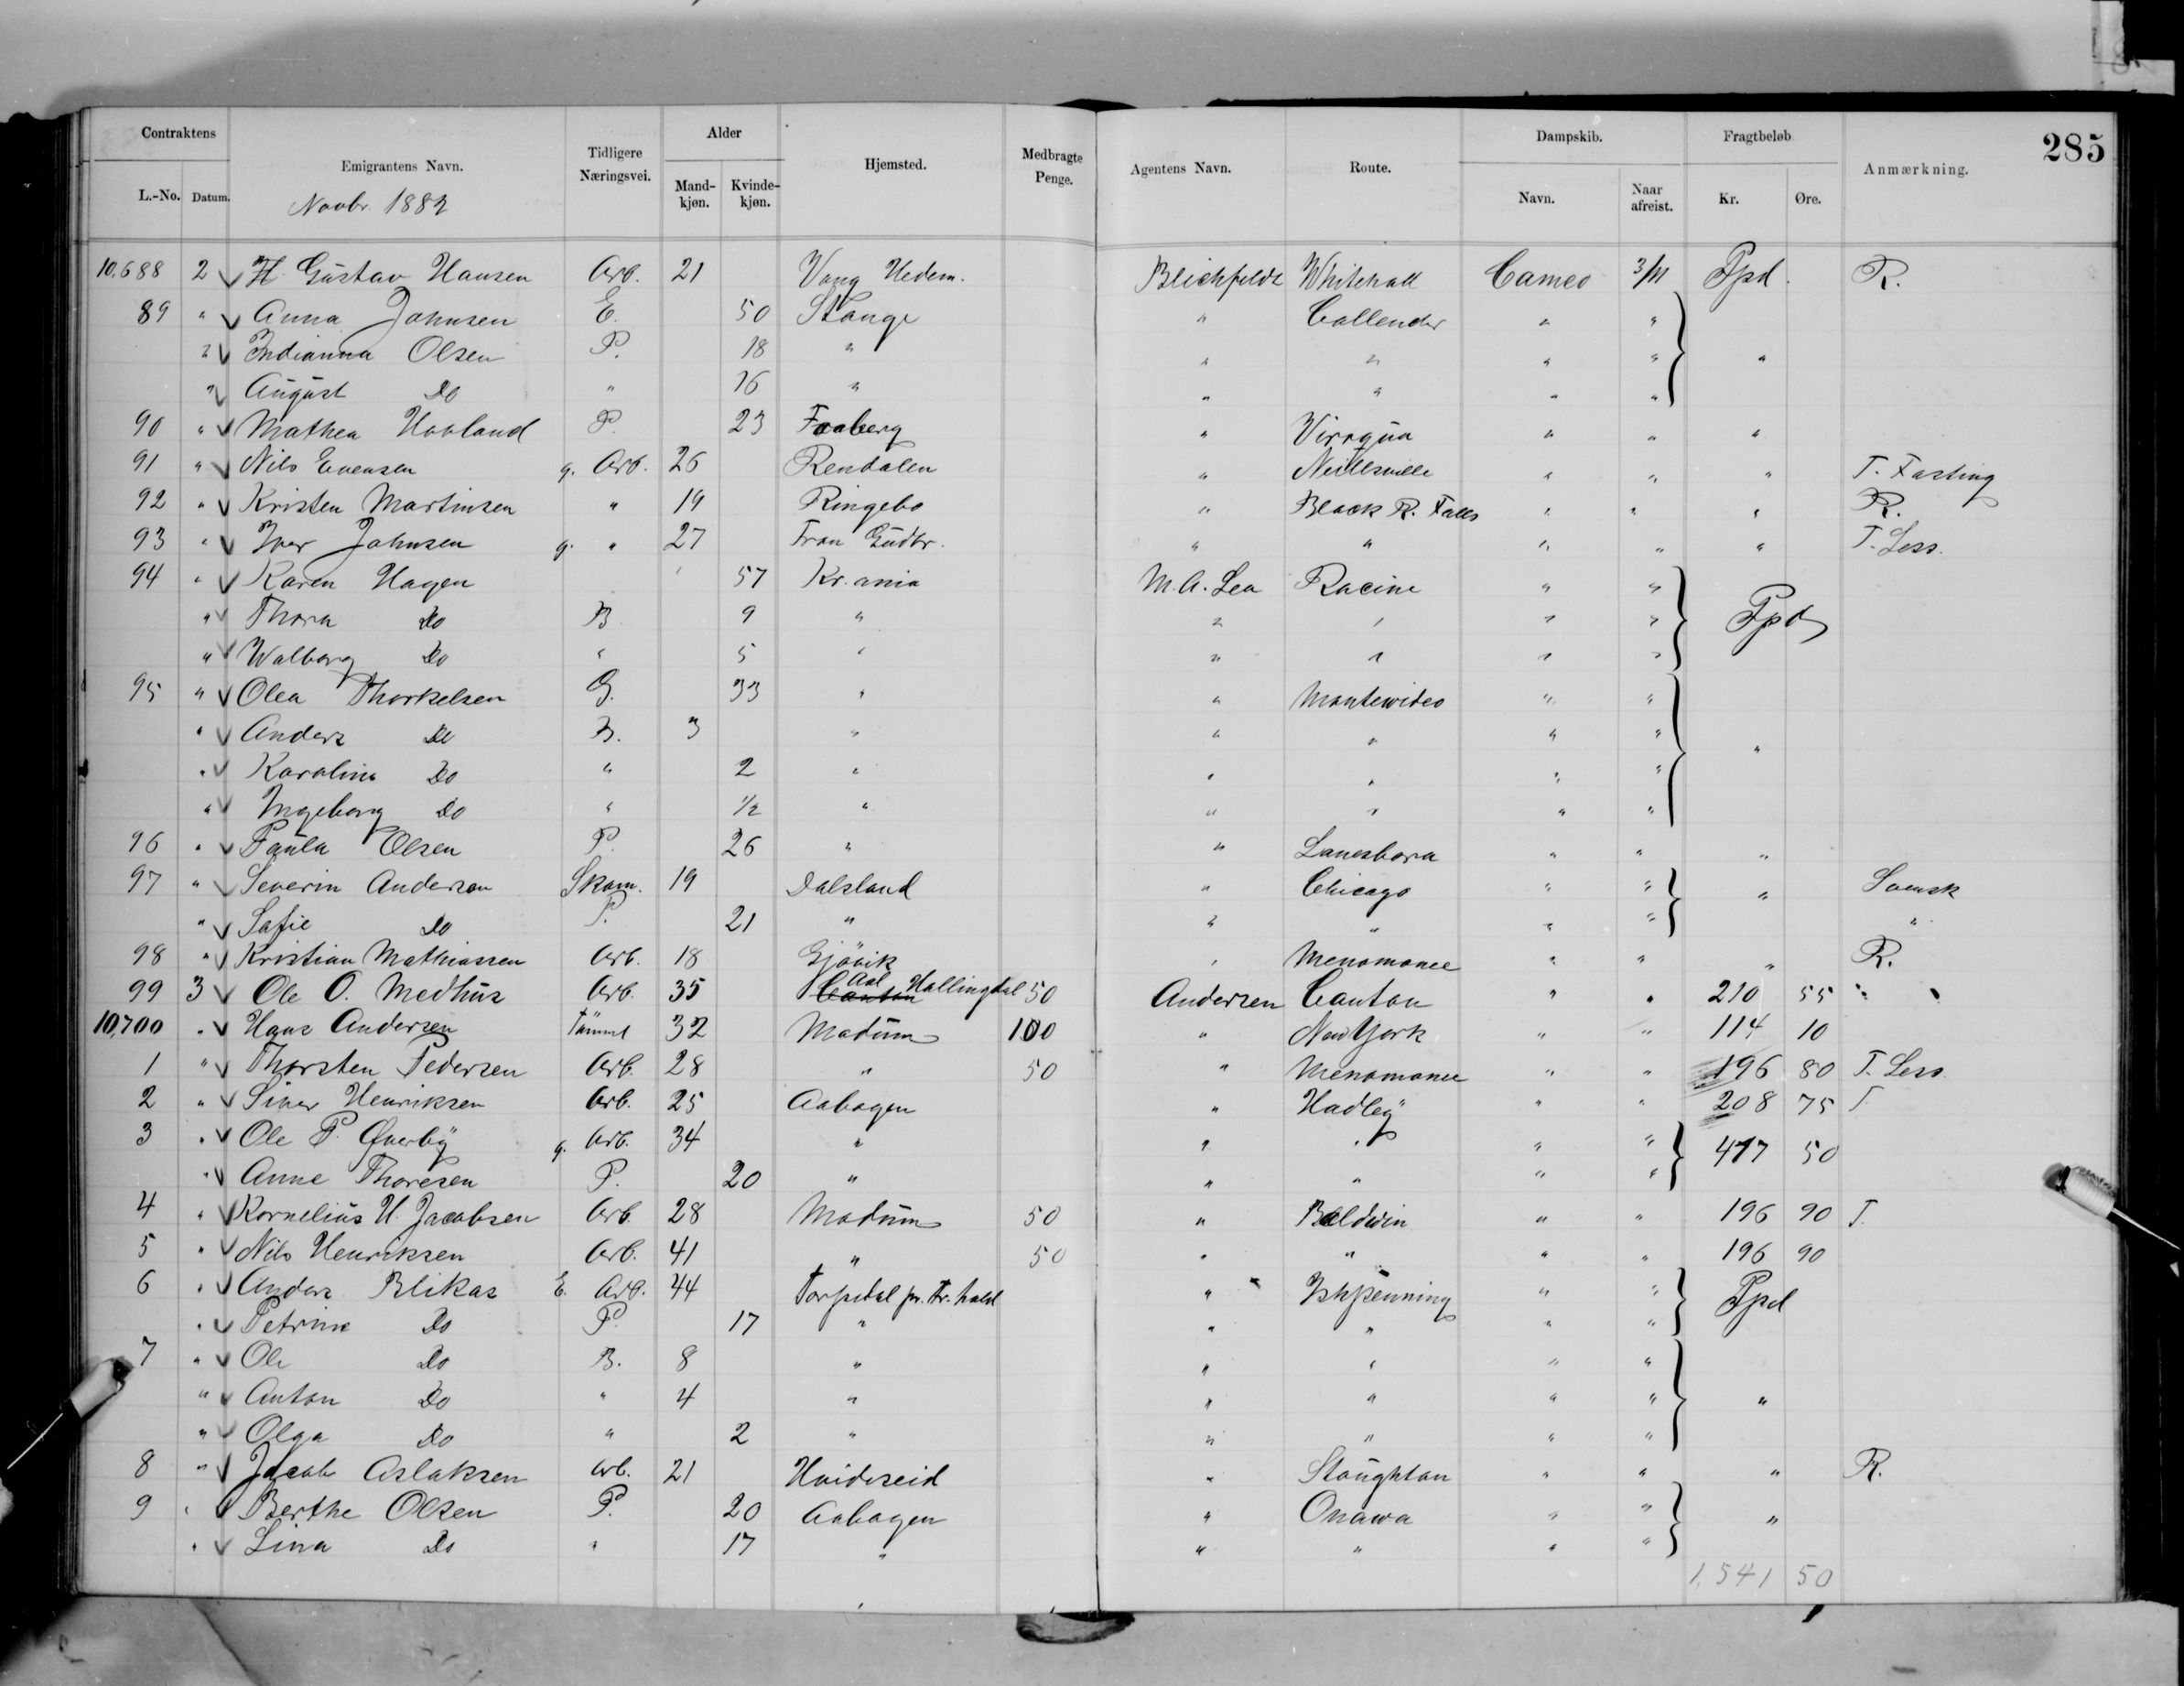 285
Contraktens | Emigrantens Navn. | Tidligere Næringsvei. | Alder | Hjemsted. | Medbragte Penge. | Agentens Navn. | Route. | Dampskib. | Fragtbeløb | Anmærkning.
L.-No. | Datum. | Mandkjøn. | Kvindekjøn. | Navn. | Naar afreist. | Kr. | Øre.
Novbr. 1882
10,688 2 √ H. Gustav Hansen Arb. 21 Vang Hedem. Blichfeldt Whitehall Cameo 3/11 Ppd. R.
89 " √ Anna Johnsen E. 50 Stange " Callender " "
" √ Indianna Olsen P. 18 " " " " " "
" √ August Do " 16 " " " " "
90 " √ Mathea Hovland P. 23 Faaberg " Viroqua " " "
91 " √ Nils Evensen g. Arb. 26 Rendalen " Neillsville " " " T. Fasting
92 " √ Kristen Martinsen " 19 Ringebo " Black R. Falls " " " R.
93 " √ Iver Johnsen g. " 27 Fron Gudbr. " " " " " T. Less.
94 " √ Karen Hagen 57 Kr.ania M.A. Lea Racine " " Ppd
" √ Thora Do B 9 " " " " "
" √ Walborg Do " 5 " " " " "
95 " √ Olea Thorkelsen G. 33 " " Montewideo " "
" √ Anders Do B. 3 " " " " " "
" √ Karoline Do " 2 " " " " "
" √ Ingeborg Do " 1/2 " " " " "
96 " √ Paula Olsen P. 26 " " Lanesbora " " "
97 " √ Severin Andersen Skom. 19 Dalsland " Chicago " " " Svensk
" √ Safie Do P. 21 " " " " " "
98 " √ Kristian Mathiassen Arb. 18 Gjövik " Menomonee " " " R.
99 3 √ Ole O. Medhus Arb. 35 Canton Aal Hallingdal 50 Andersen Canton " " 210 55 " "
10,700 " √ Hans Andersen Tömmt 32 Modum 100 " New York " " 114 10
1 " √ Thorsten Pedersen Arb. 28 " 50 " Menomonee " " 196 80 T. Less.
2 " √ Siver Henriksen Arb. 25 Aabogen " Hadley " " 208 75 T.
3 " √ Ole P. Øverby g. Arb. 34 " " " " " 417 50
" √ Anne Thoresen P. 20 " " " " "
4 " √ Kornelius H. Jacobsen Arb. 28 Modum 50 " Baldwin " " 196 90 T.
5 " √ Nils Henriksen Arb. 41 " 50 " " " " 196 90
6 " √ Anders Blikas E. Arb. 44 Torpedal pr. Fr.hald " Ishpenning " " Ppd
" √ Petrine Do P. 17 " " " " "
7 " √ Ole Do B. 8 " " " " "
" √ Anton Do " 4 " " " " " "
" √ Olga Do " 2 " " " " "
8 " √ Jacob Aslaksen Arb. 21 Hvideseid " Stoughton " " " R.
9 " √ Berthe Olsen P. 20 Aabogen " Onawa " " "
" √ Lina Do " 17 " " " " "
1,541 50